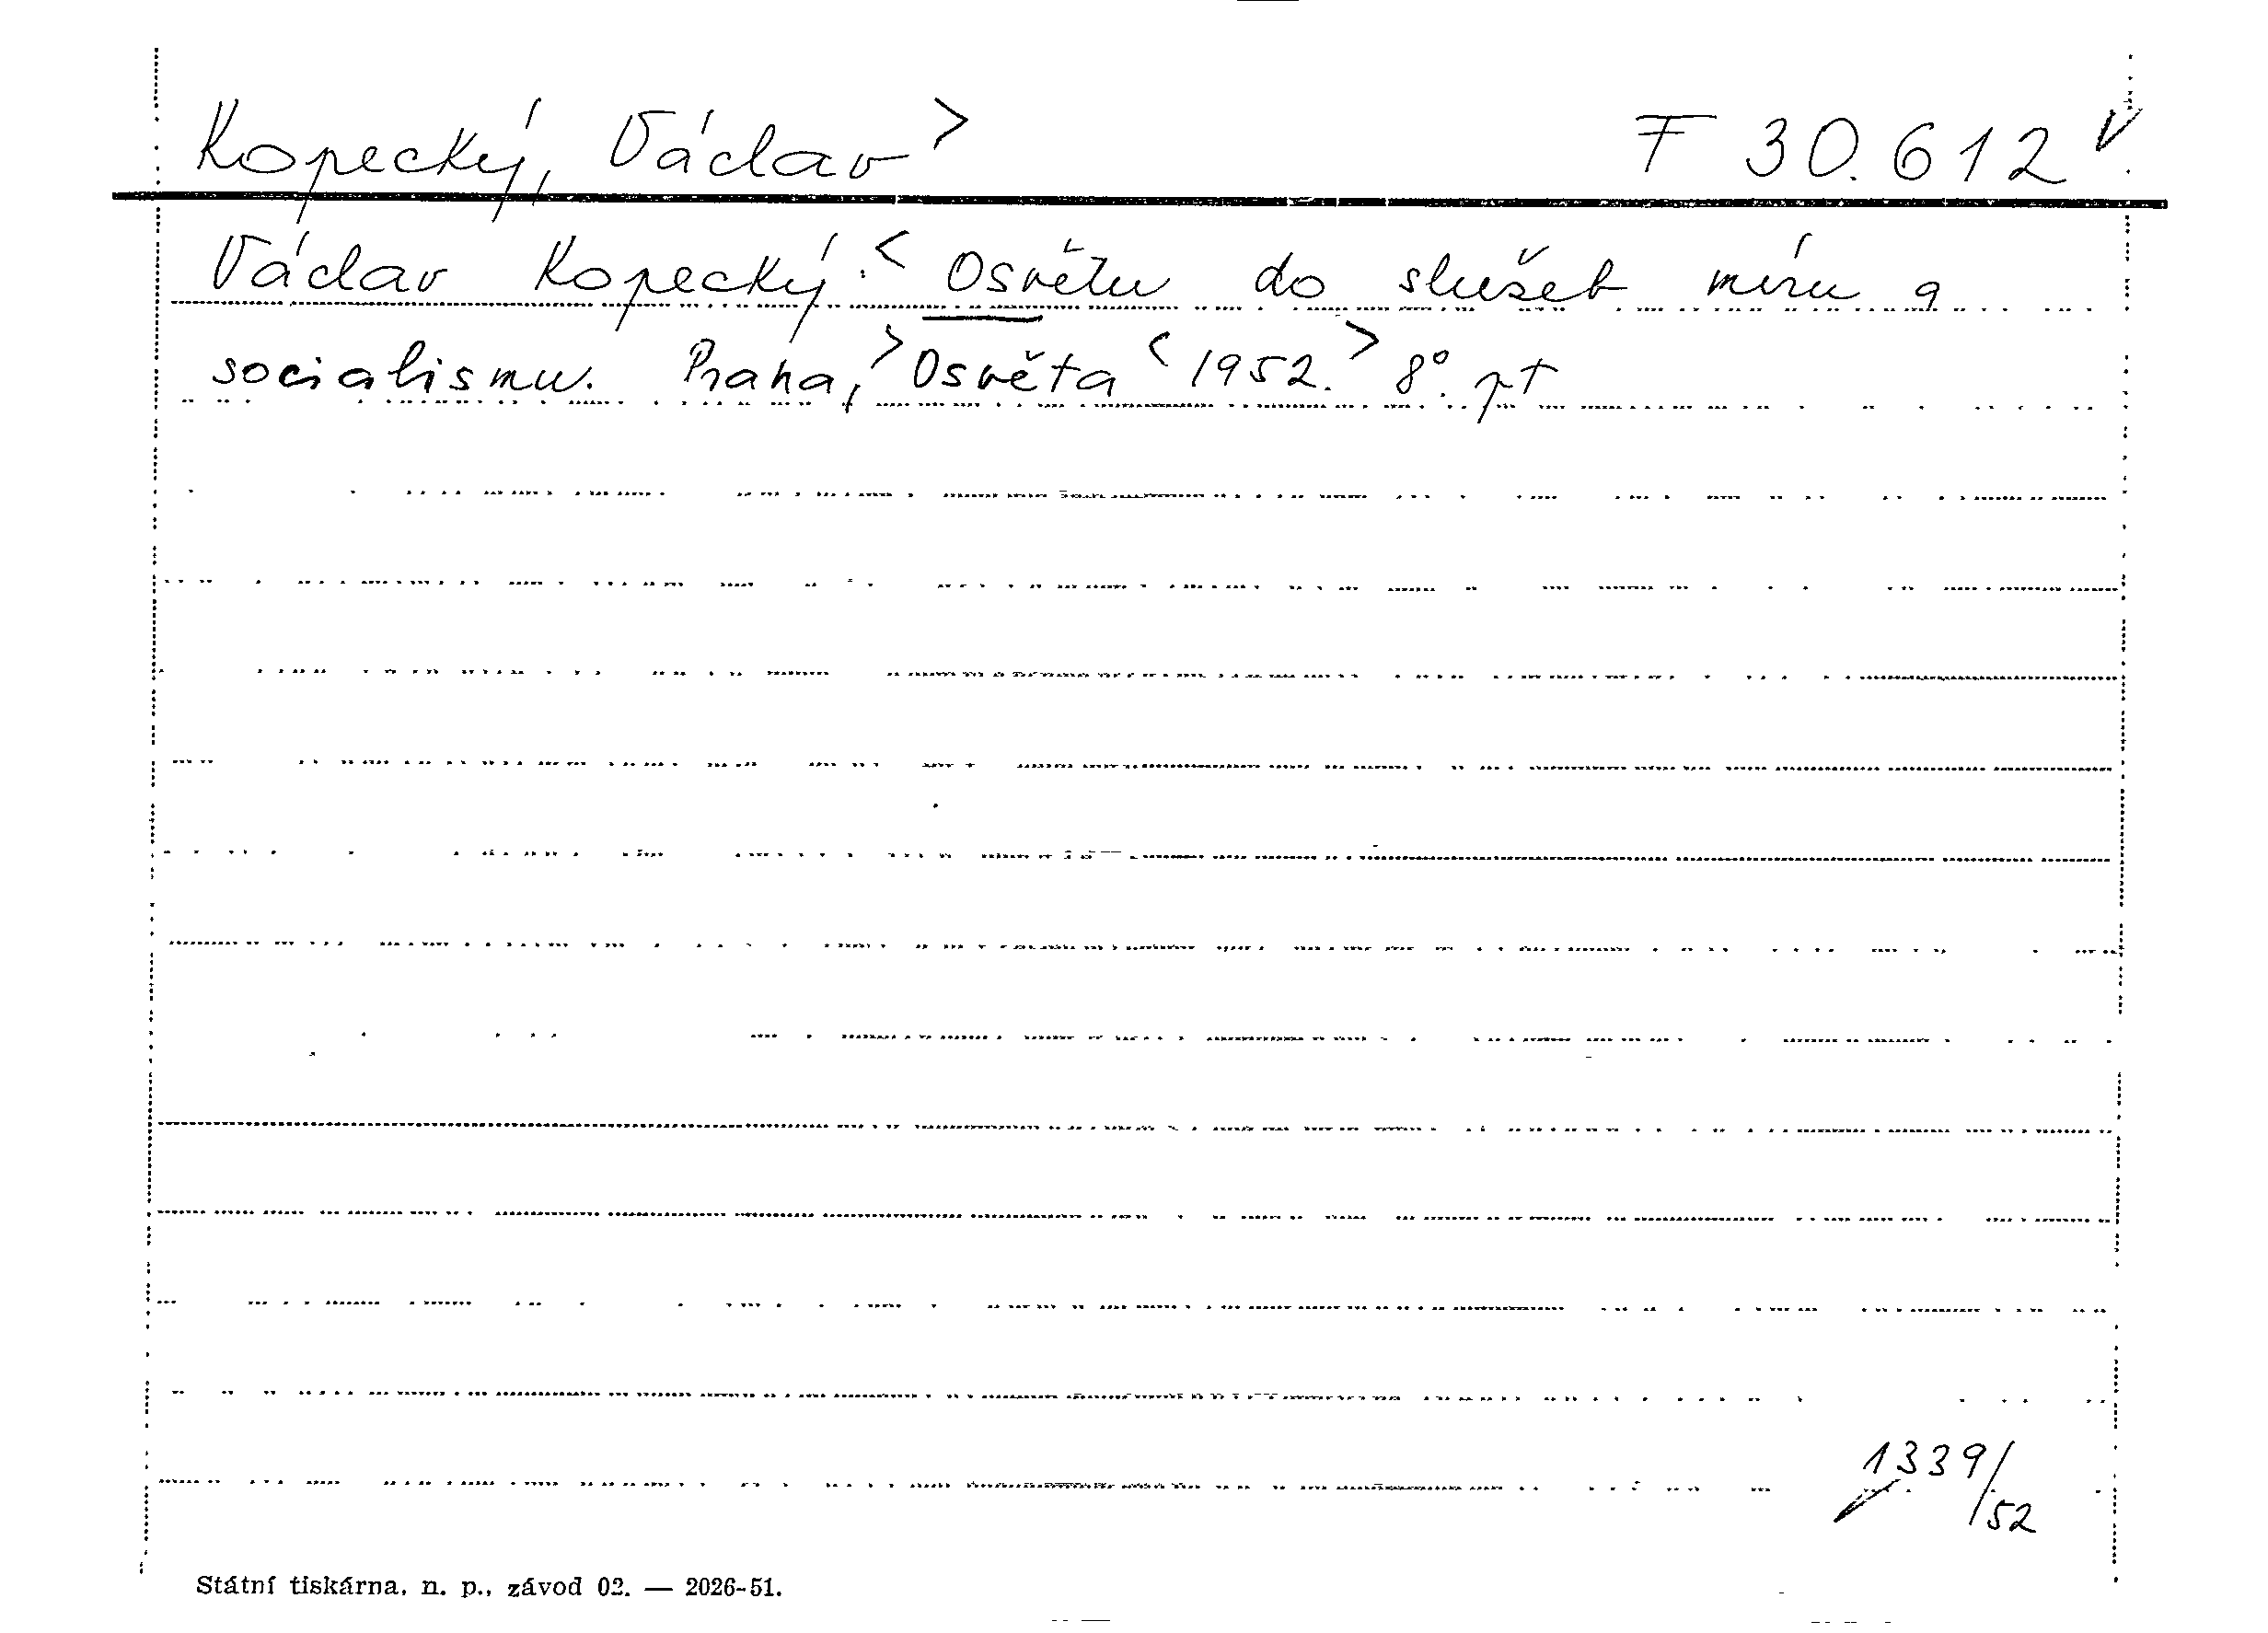 Kopecký, Václav> F 30.612
Václav Kopecký:< Osvětu do služeb míru a
socialismu. Praha,> Osvěta < 1952.> 8°. pt
1339/52
Státní tiskárna, n. p., závod 02. — 2026-51.